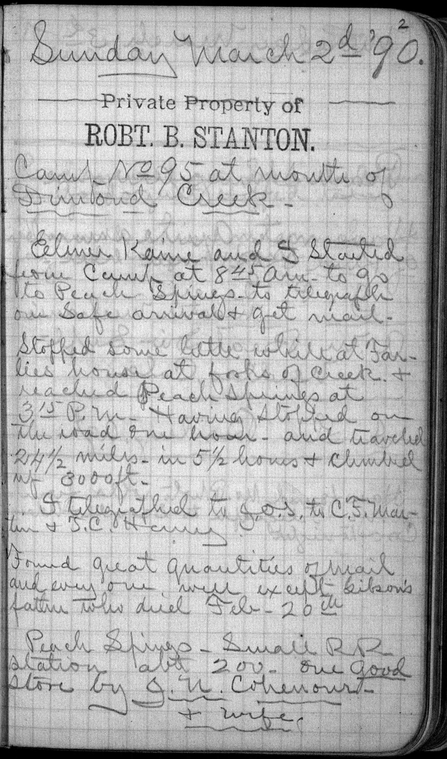 2
Sunday March 2d '90.
Private Property of
ROBT. B. STANTON.
Camp No 95 at mouth of
Diamond Creek.
Elmer Kane and I Started
from Camp at 8 45 Am. to go
to Peach Springs to telegraph
our Safe arrival & get mail.
Stopped Some little while at Far-
lies house at forks of Creek. &
reached Peach Springs at
3 15 P.M. Having Stopped on
the road one hour and traveled
24 1/2 miles in 5 1/2 hours & climbed
up 3000 ft.
I telegraphed to J.O.S. to C.F. Mar-
tin & J.C.
Found great quantities of mail
and every one well except Gibson's
father who died Feb 20th
Peach Springs - Small R R
Station abt 200. One good
Store by J. N. Cohenour
& wife.